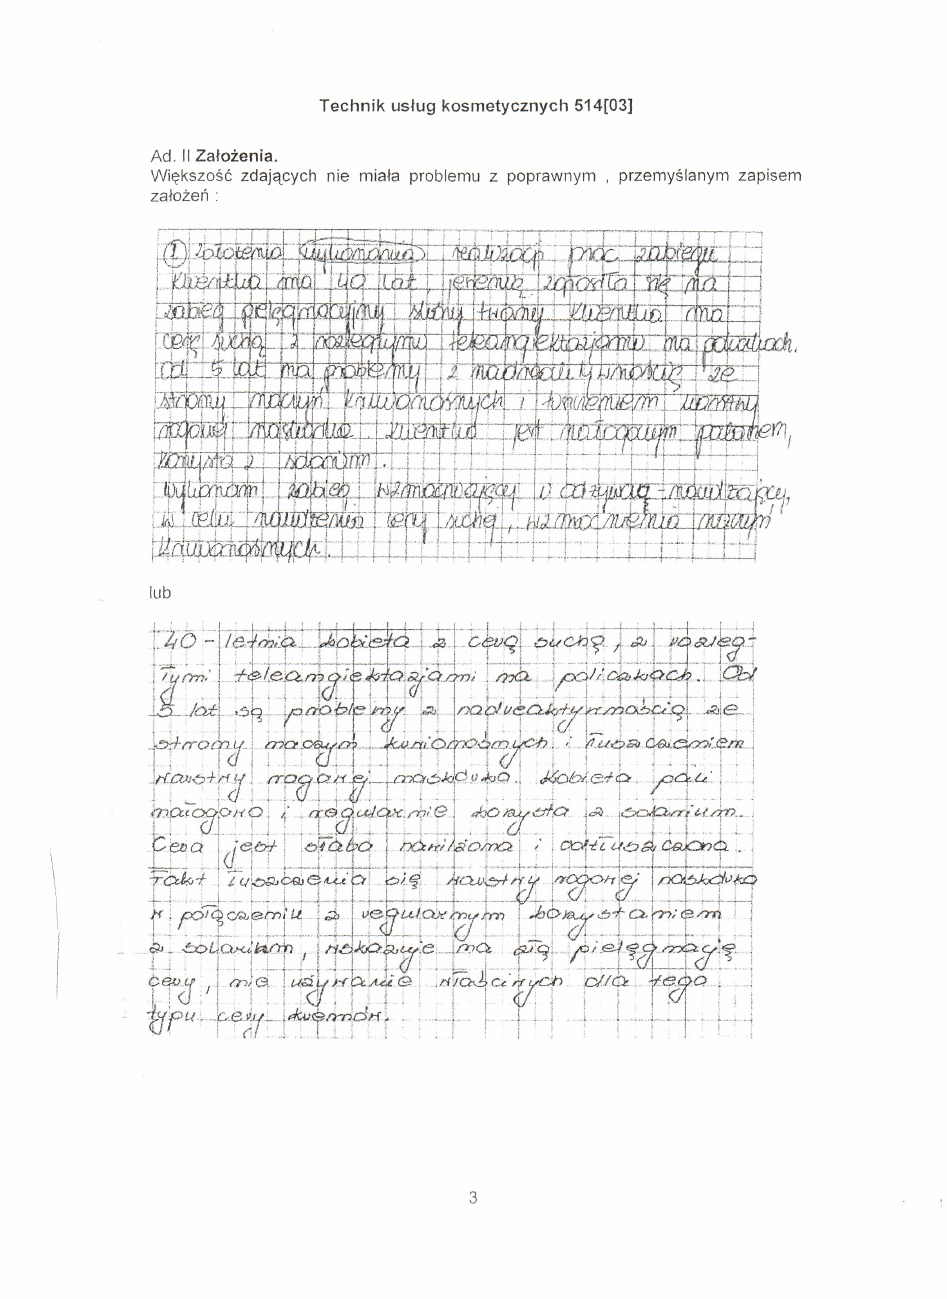 Technik usług kosmetycznych 514[03]
Ad. II Założenia.
Większość zdających nie miała problemu z poprawnym , przemyślanym zapisem
założeń :
① Założenia realizacji prac zabiegu
Klientka ma 40 lat, zgłosiła się na
zabieg pielęgnacyjny skóry twarzy. Klientka ma
cerę suchą z rozległymi teleangiektazjami na policzkach.
Od 5 lat ma problemy z nadreaktywnością ze
strony naczyń krwionośnych i łuszczeniem warstwy
rogowej naskórka. Klientka jest nałogowym palaczem,
korzysta z solarium.
Wykonam zabieg wzmacniający odżywczo-nawilżający,
w celu nawilżenia cery suchej, wzmocnienia naczyń
krwionośnych.
lub
40-letnia kobieta z cerą suchą, z rozleg-
łymi teleangiektazjami na policzkach. Od
5 lat są problemy z nadreaktywnością ze
strony naczyń krwionośnych i łuszczeniem
warstwy rogowej naskórka. Kobieta pali
nałogowo i regularnie korzysta z solarium.
Cera jest słabo nawilżona i odtłuszczona.
Fakt łuszczenia się warstwy rogowej naskórka
w połączeniu z regularnym korzystaniem
z solarium, wskazuje na złą pielęgnację
cery, nie używanie właściwych dla tego
typu cery kremów.
3